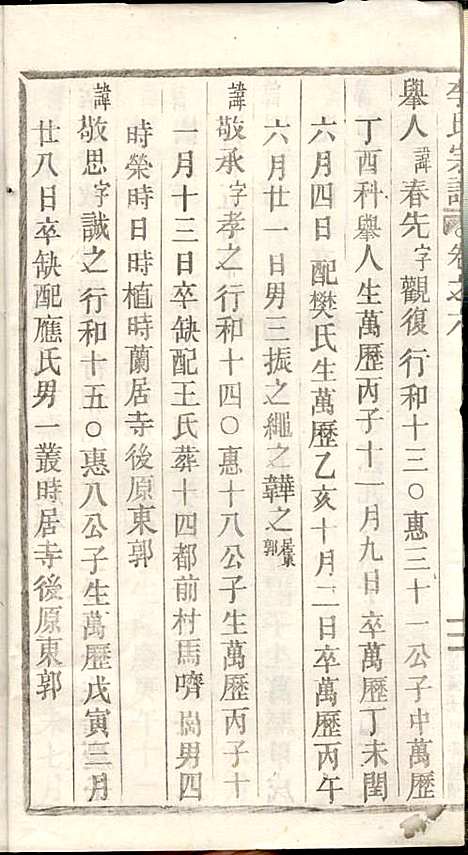 李氏宗譜 卷之八
舉人諱春先字觀復行和十三○惠三十一公子中萬歷
丁酉科舉人生萬歷丙子十一月九日卒萬歷丁未閏
六月四日配樊氏生萬歷乙亥十月二日卒萬歷丙午
六月廿一日男三振之繩之韡之居東郭
諱敬承字孝之行和十四○惠十八公子生萬歷丙子十
一月十三日卒缺配王氏葬十四都前村馬嚌 男四
時榮時日時植時蘭居寺後原東郭
諱敬思字誠之行和十五○惠八公子生萬歷戊寅三月
廿八日卒缺配應氏男一叢時居寺後原東郭